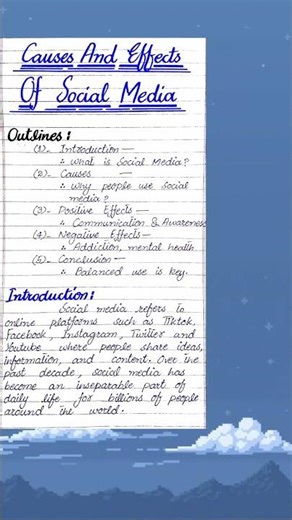 Causes And Effects
Of Social Media
Outlines :
(1)- Introduction —
∴ What is Social Media?
(2)- Causes —
∴ Why people use Social
media?
(3)- Positive Effects —
∴ Communication & Awareness
(4)- Negative Effects —
∴ Addiction, mental health
(5)- Conclusion —
∴ Balanced use is key.
Introduction :
Social media refers to
online platforms such as Tiktok,
Facebook, Instagram, Twitter and
Youtube where people share ideas,
information, and content. Over the
past decade, social media has
become an inseparable part of
daily life for billions of people
around the world.